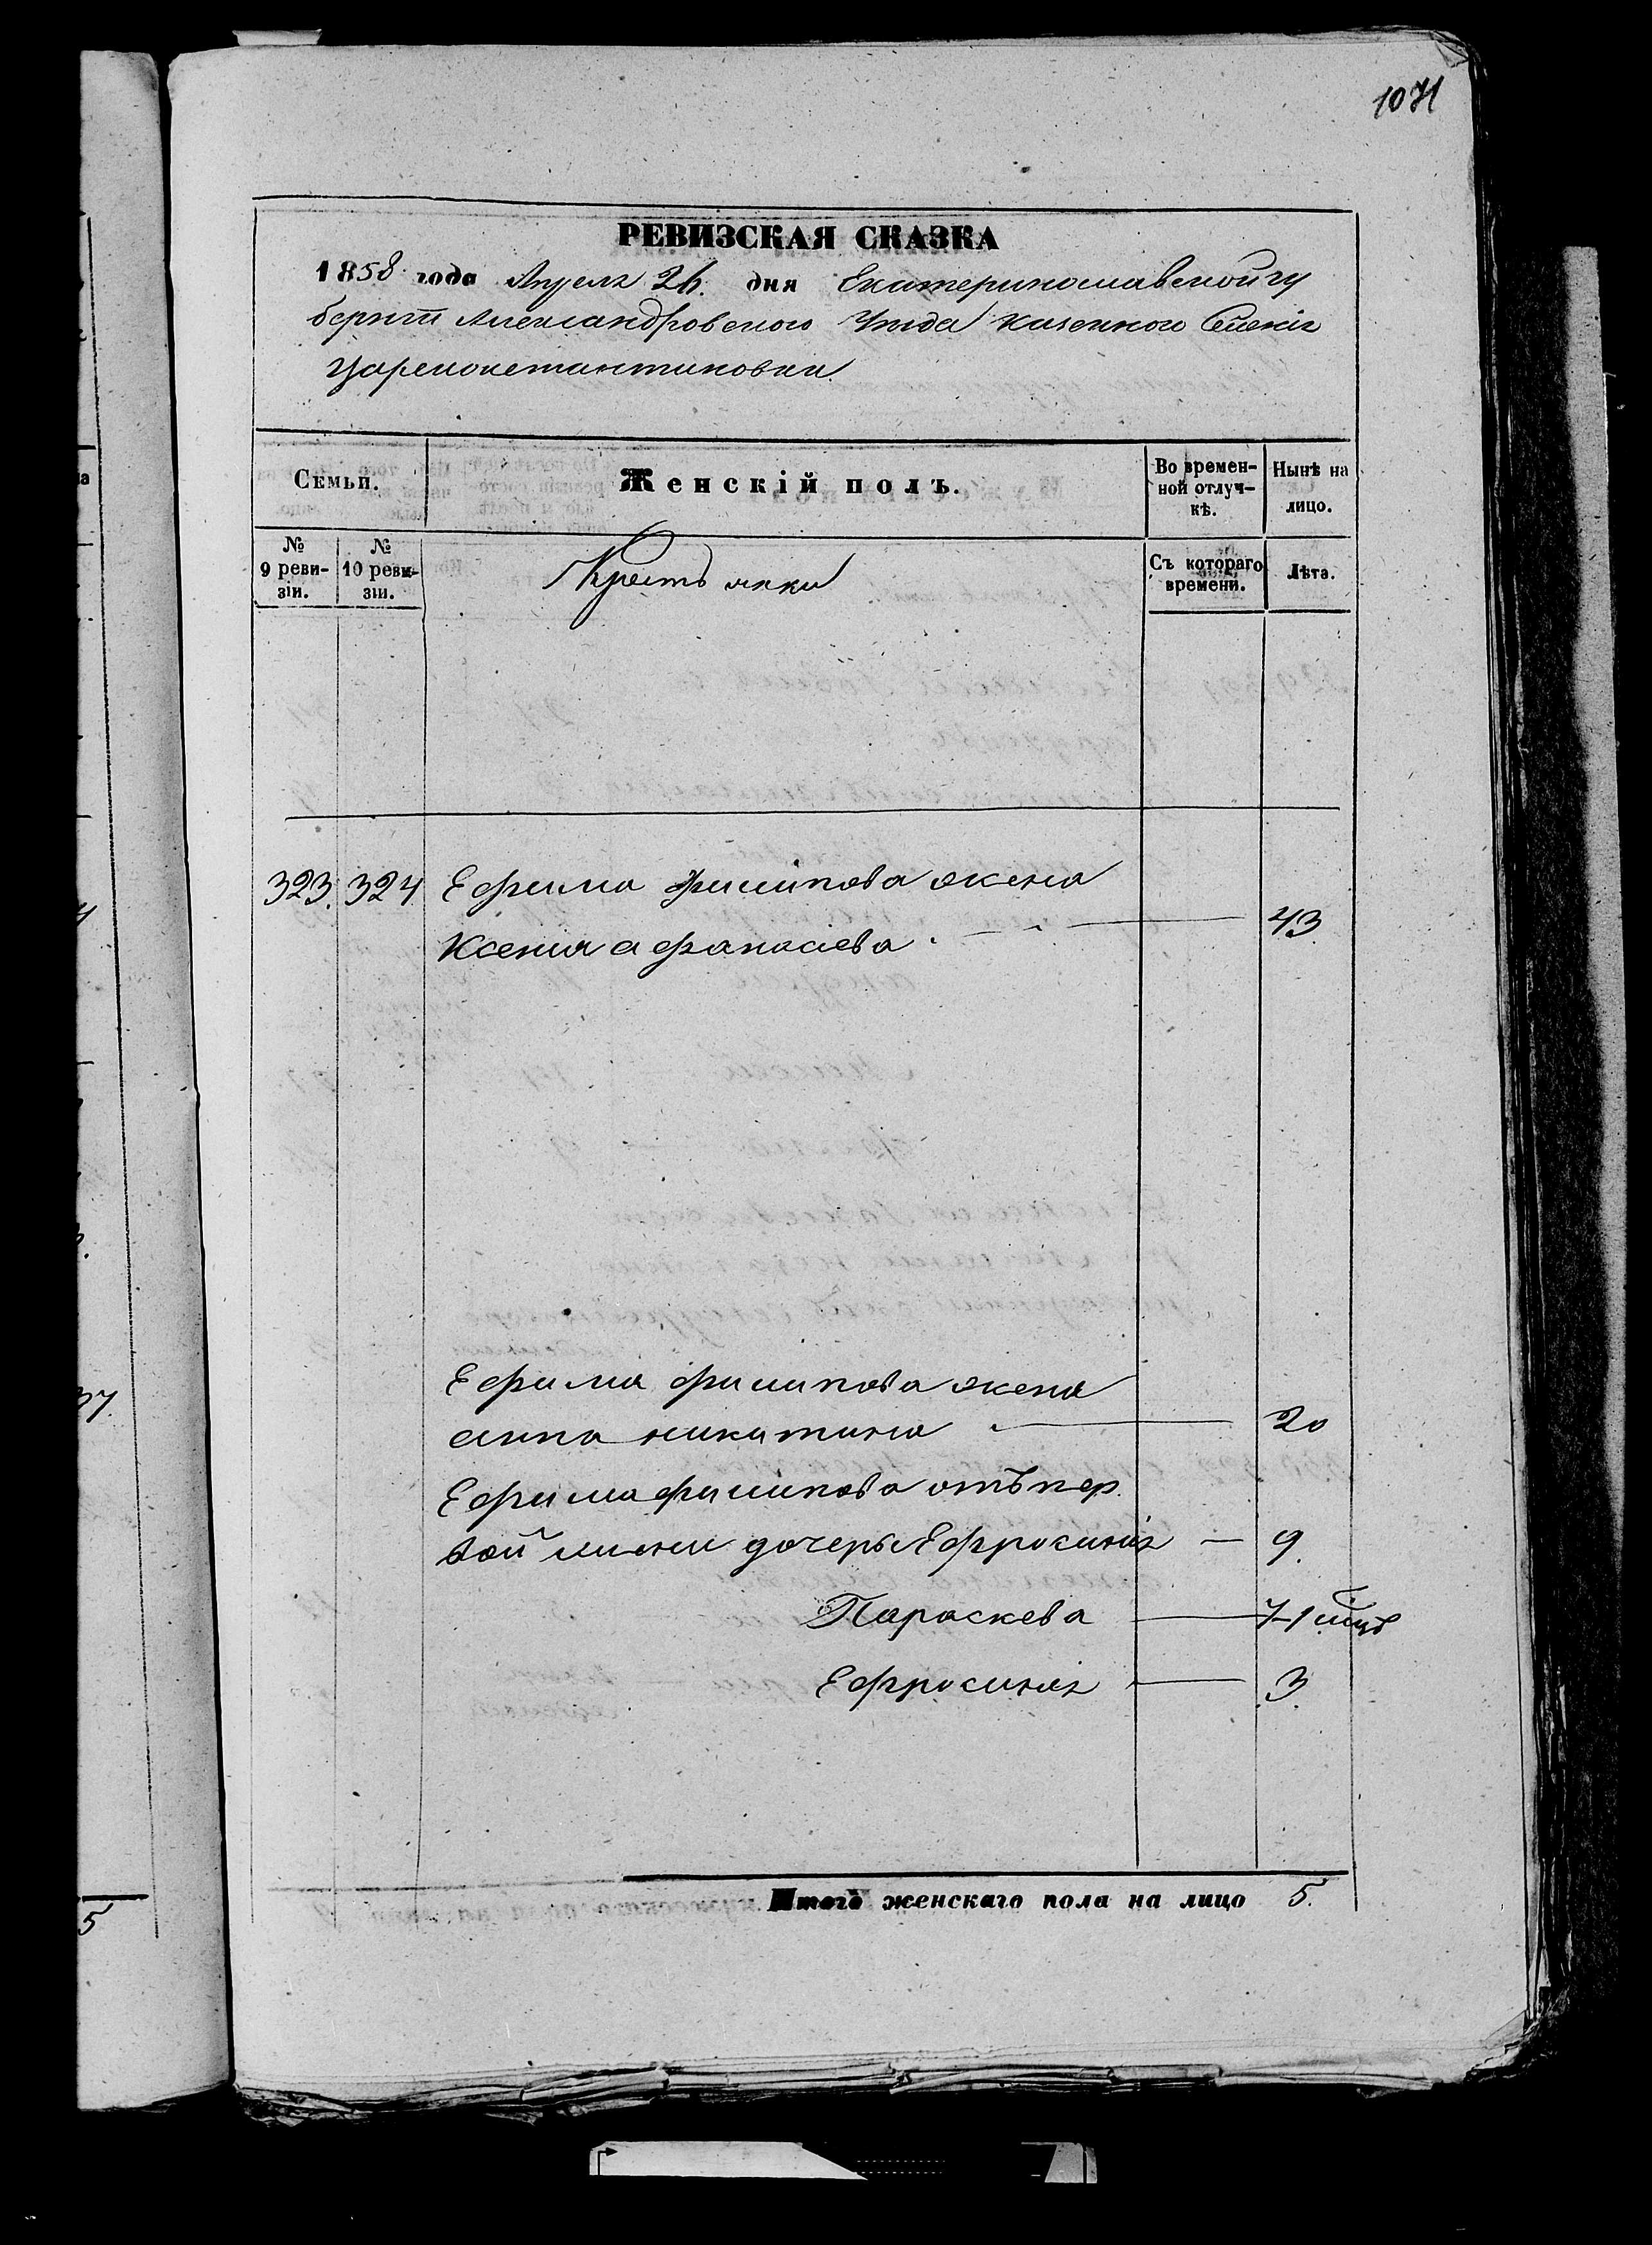 1071
РЕВИЗСКАЯ СКАЗКА
1858 года Апреля 26. дня Екатеринославской гу
берніи Александровского Уезда казенного Селенія
Цареконстантиновки
Семьи.
Женскій полъ.
Во времен-
ной отлуч-
кѣ.
Нынѣ на
лицо.
№
9 реви-
зіи.
№
10 реви-
зіи.
Крестьянки
Съ котораго
времени.
Лѣта.
323. 324 Ефима Филипова жена
Ксения Афанасіева 43
Ефима Филипова жена
анна никитина 20
Ефима Филипова отъ пер
вой жены дочерьи Ефросинія 9.
Параскева 7-1 мцъ
Ефросинія 3.
Итого женскаго пола на лицо 5.
37.
5